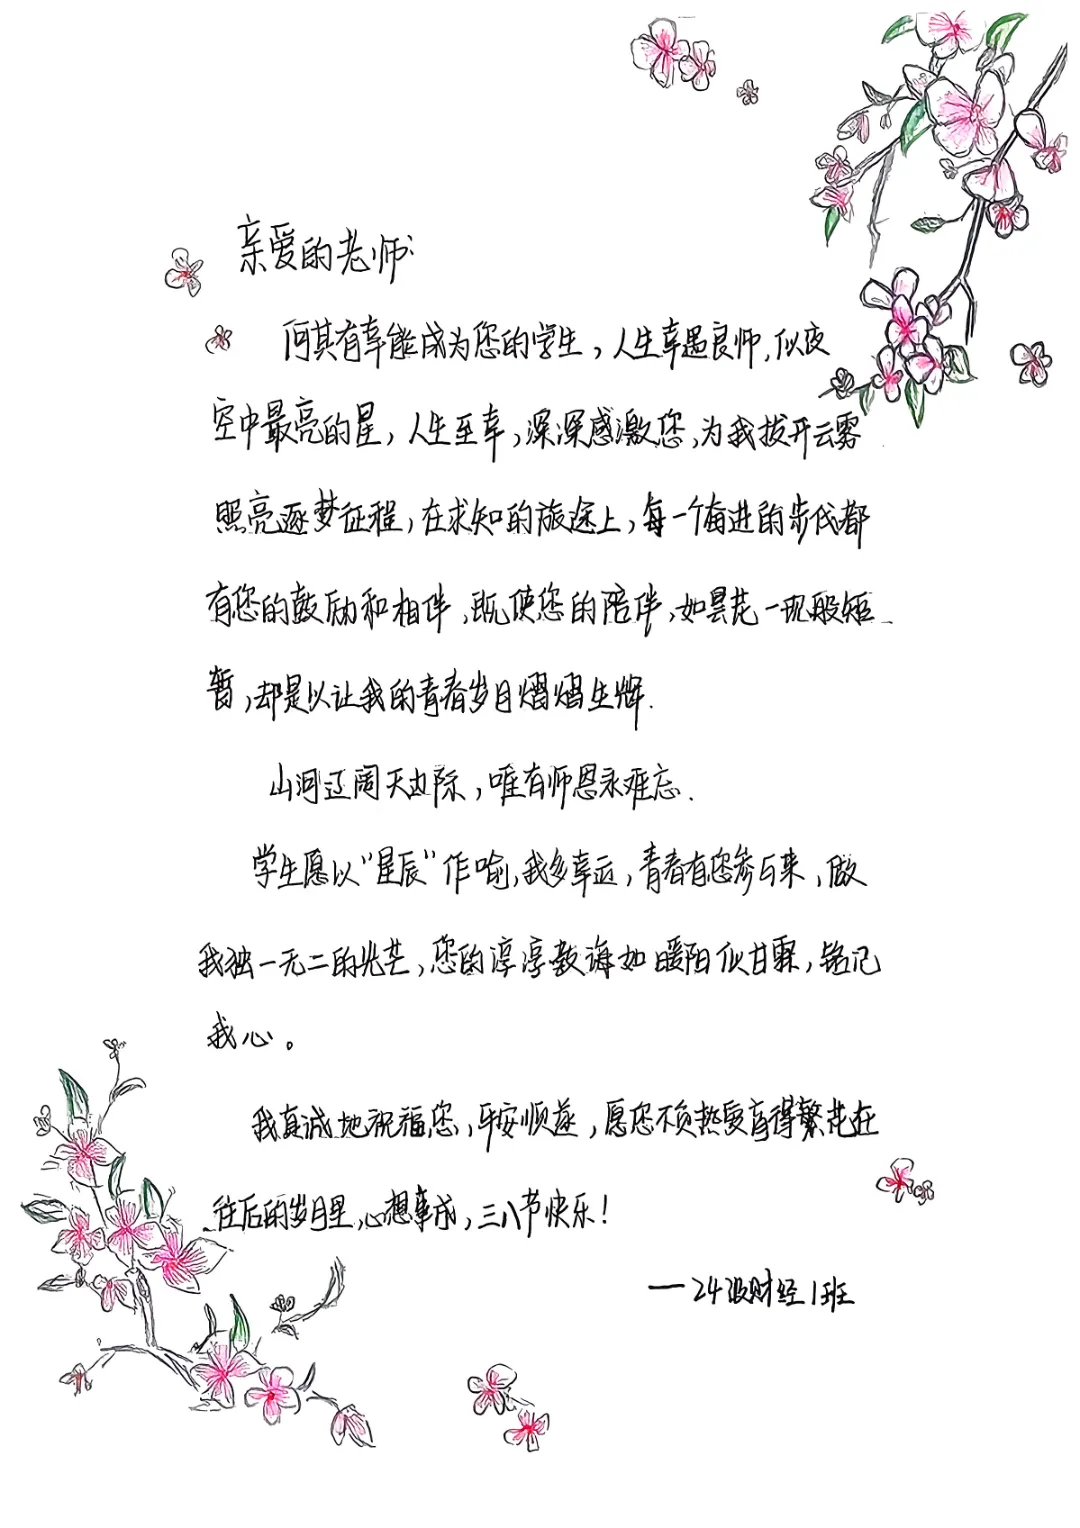 亲爱的老师:
何其有幸能成为您的学生,人生幸遇良师,似夜
空中最亮的星,人生至幸,深深感激您,为我拔开云雾
照亮逐梦征程,在求知的旅途上,每一个奋进的步伐都
有您的鼓励和相伴,既使您的陪伴,如昙花一现般短
暂,却足以让我的青春岁月熠熠生辉.
山河辽阔天边际,唯有师恩永难忘.
学生愿以“星辰”作喻,我多幸运,青春有您参与来,做
我独一无二的光芒,您的淳淳教诲如暖阳似甘霖,铭记
我心。
我真诚地祝福您,平安顺遂,愿您不负热爱育得繁花在
往后的岁月里,心想事成,三八节快乐!
—24级财经1班